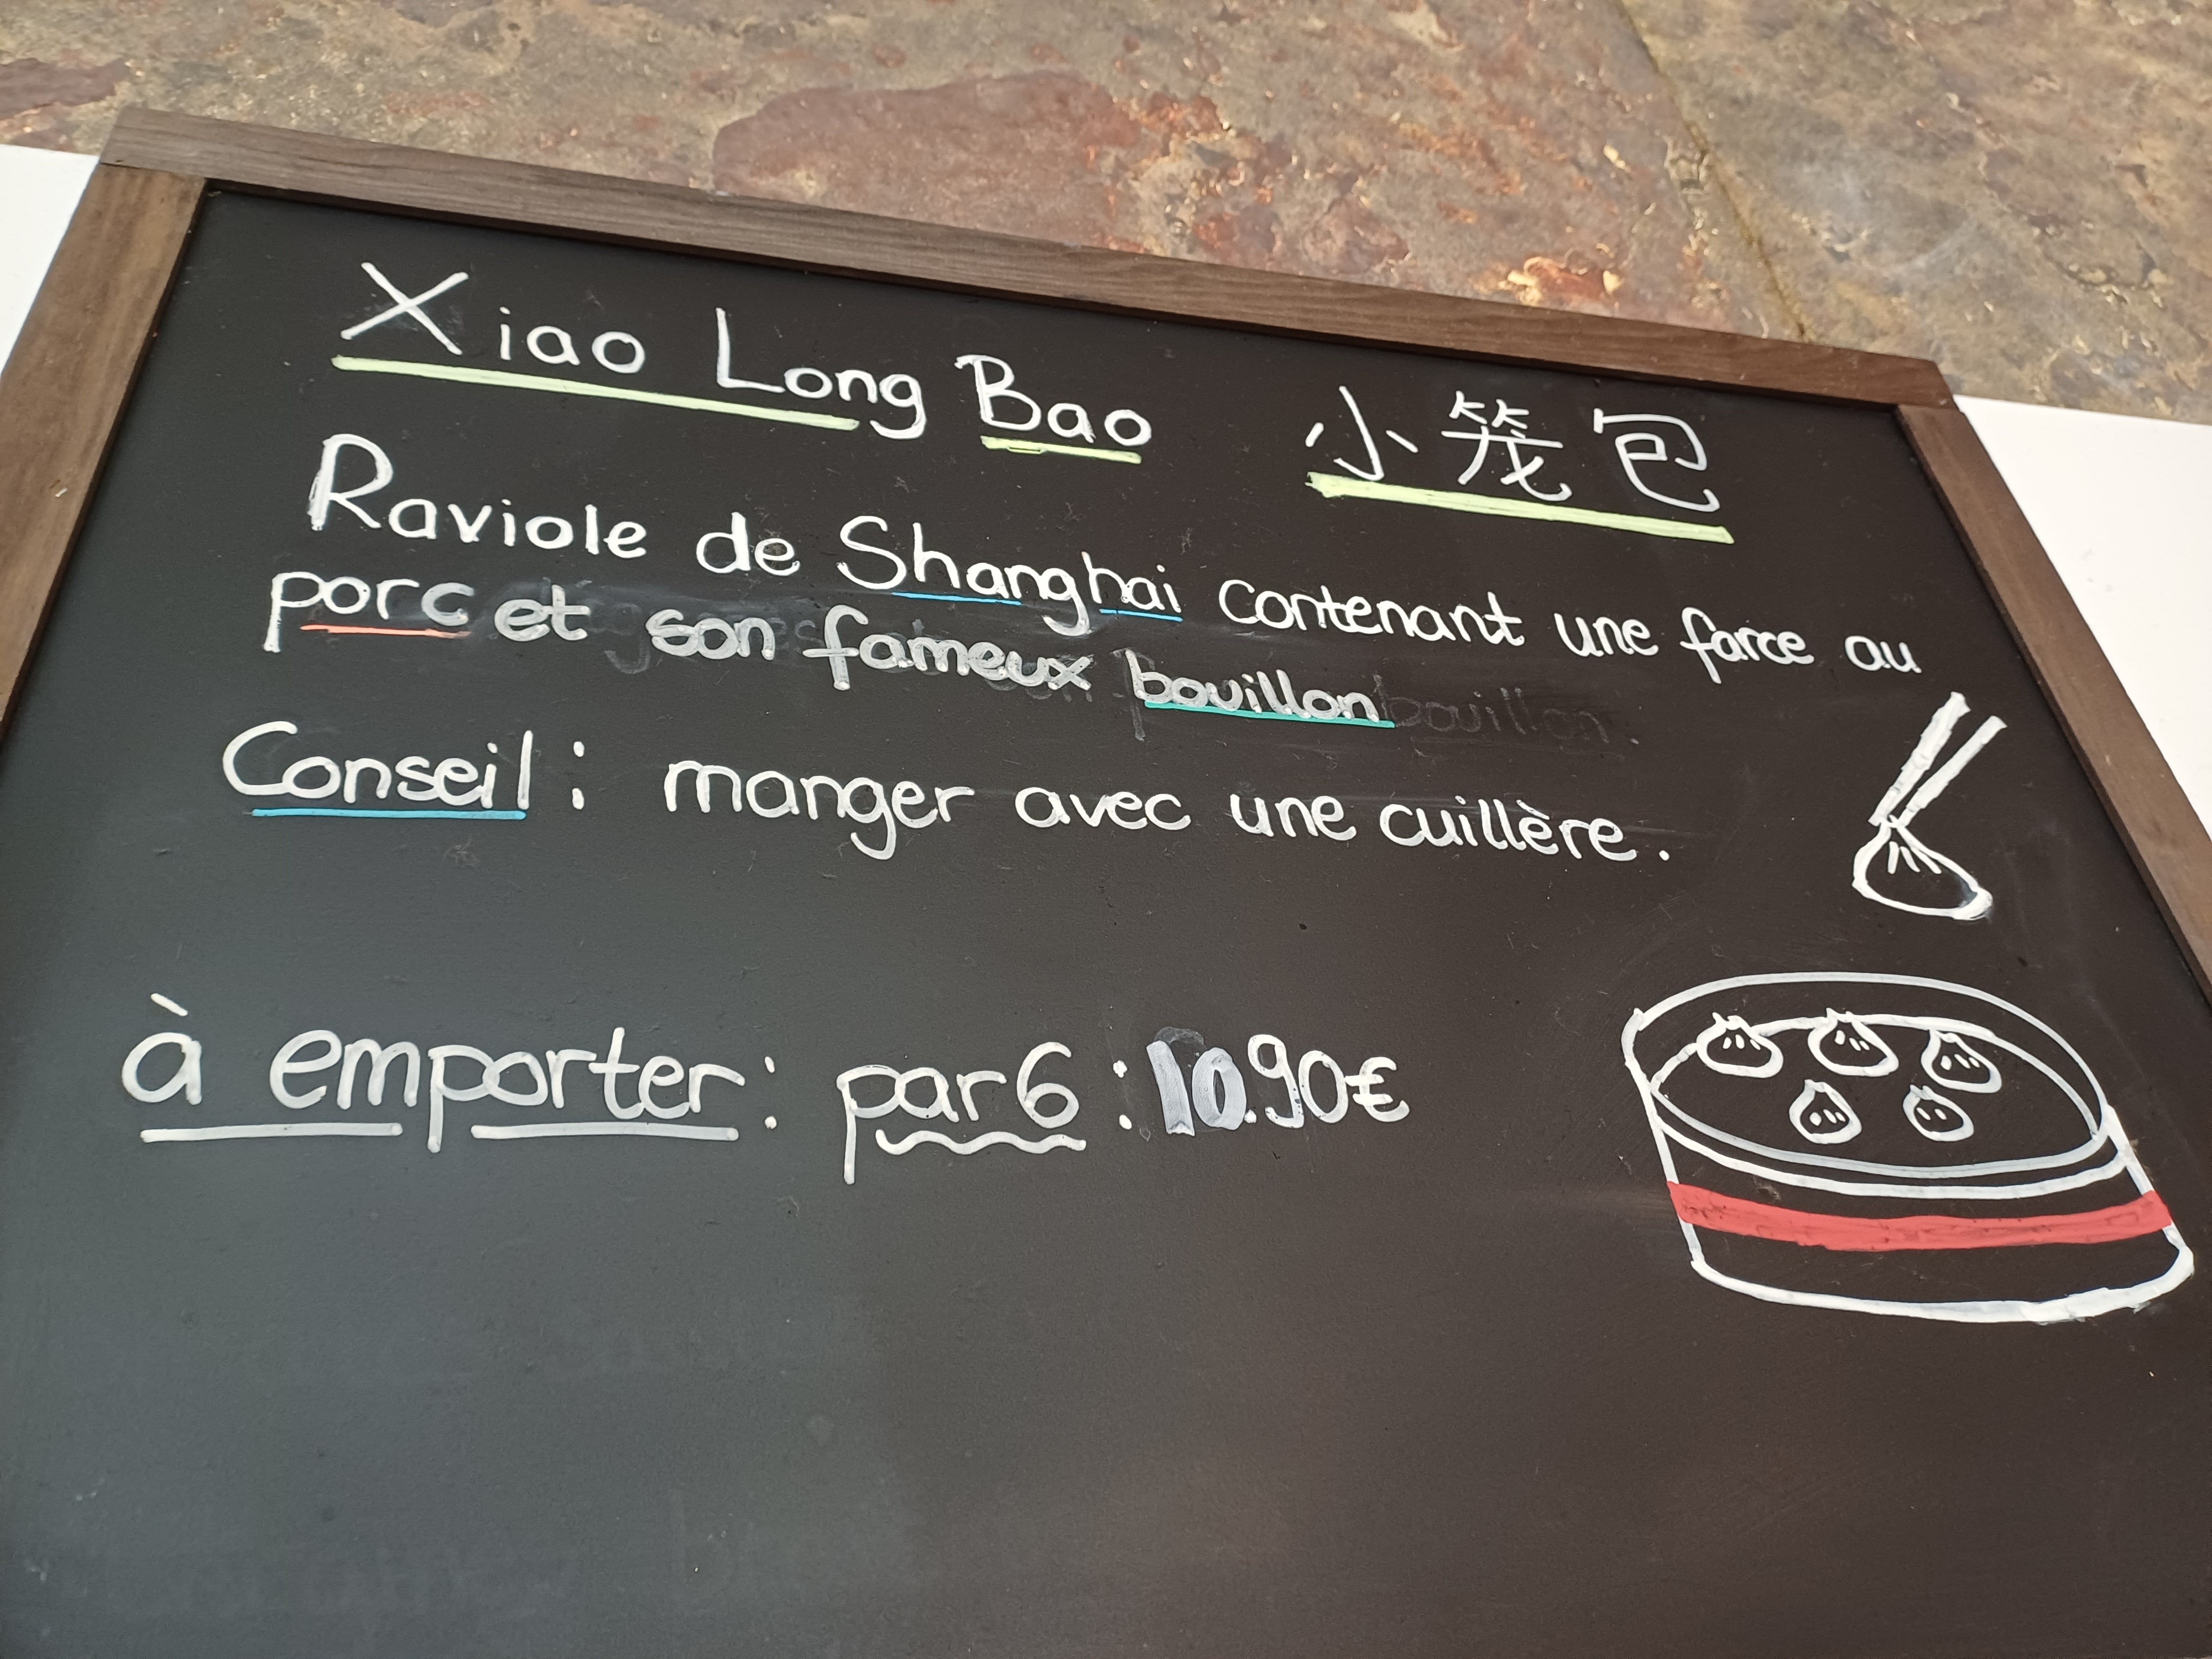 Xiao Long Bao 小笼包
Raviole de Shanghai contenant une farce au
porc et son fameux bouillon
Conseil : manger avec une cuillère.
à emporter : par 6 : 10.90€